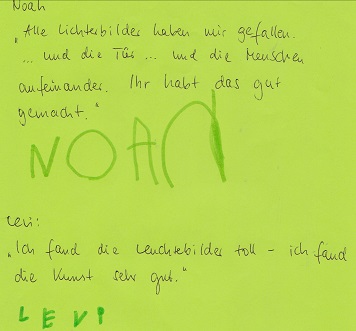 Noah
„Alle Lichterbilder haben mir gefallen.
... und die Tür ... und die Menschen
aufeinander. Ihr habt das gut
gemacht."
NOAH
Levi:
„Ich fand die Leuchtebilder toll - ich fand
die Kunst sehr gut."
LEVI